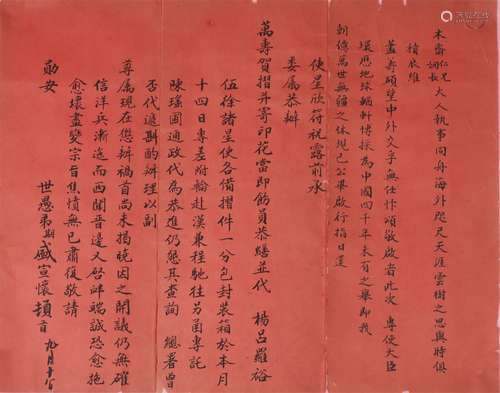 木齋仁兄詞長大人執事同舟海外咫尺天涯雲樹之思與時俱
積依維
蓋壽頤望中外交孚無任忭頌敬啟者此次 專使大臣
環歷地球輶軒博採為中國四千年未有之舉即我
朝億萬世無疆之休現已公畢啟行指日還
使星欣符祝露前承
委属恭辦
萬壽賀摺并寄印花當即飭員恭繕並代 楊呂羅裕
伍徐諸星使各備摺件一分包封裝箱於本月
十四日專差附輪赴漢兼程馳往另函專託
陳瑤圃通政代為恭進仍懇其查詢 總署曾
否代遞斟酌辦理以副
尊属現在懲辦禍首尚未揭曉因之開議仍無確
信洋兵漸迤而西聞晉邊又啟衅端誠恐愈拖
愈壞盡變宗旨焦憤無已肅復敬請
勛安
世愚弟期盛宣懷頓首 九月十六日